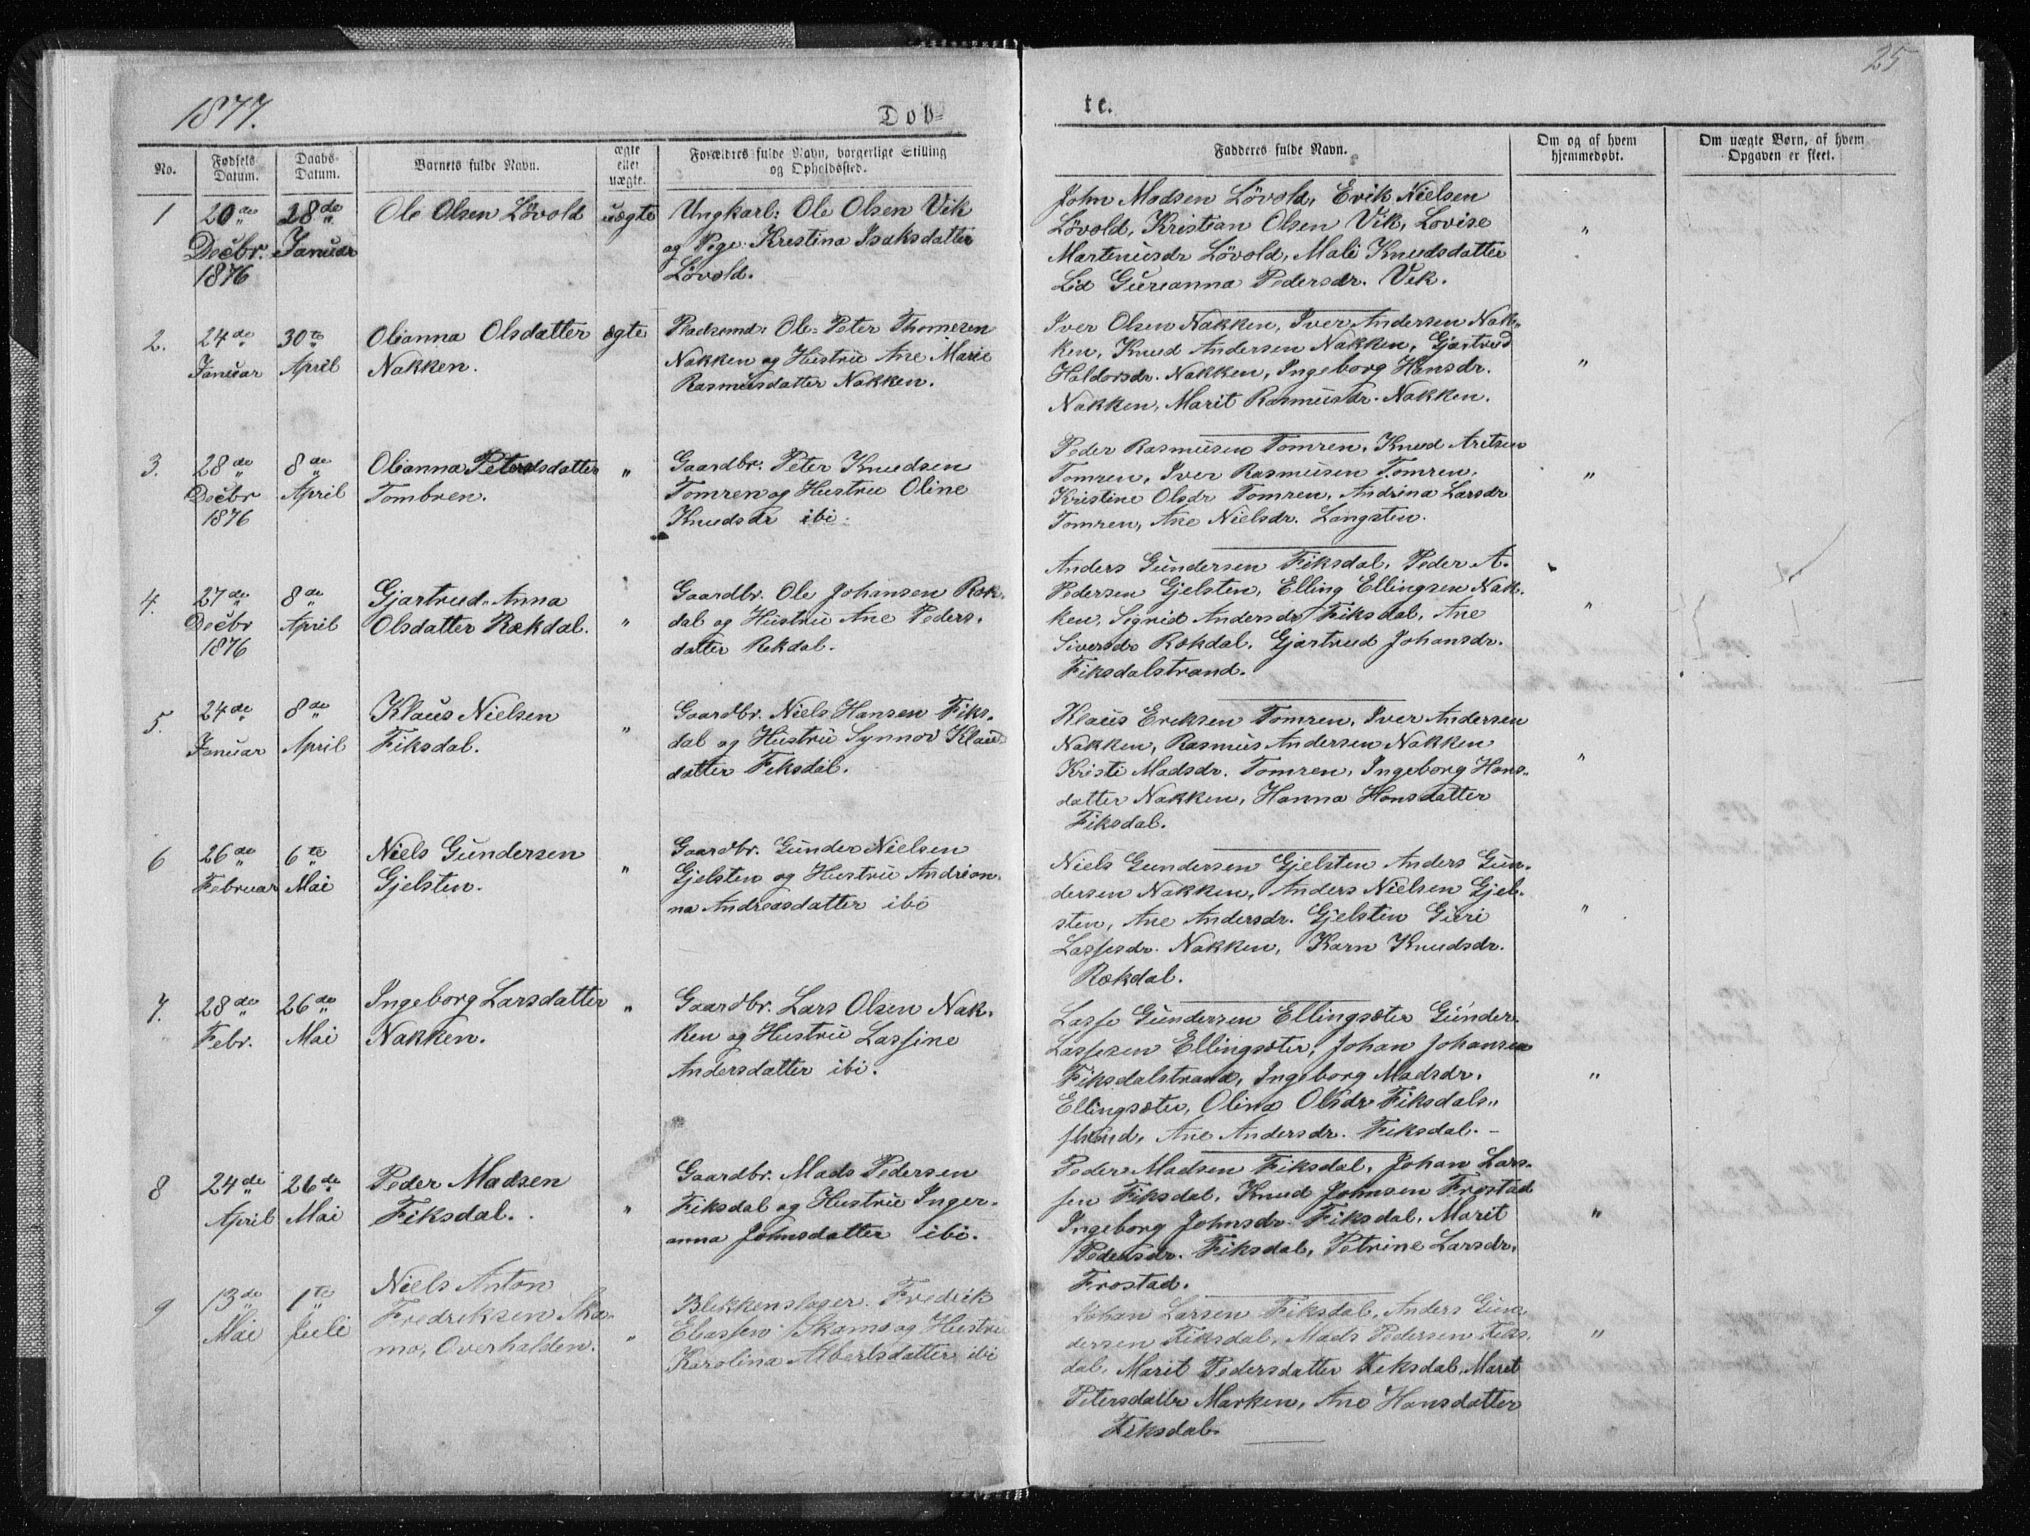 25
1877.
Døb-
te.
No.
Fødsels
Datum.
Daabs-
Datum.
Barnets fulde Navn.
ægte
eller
uægte.
Forældres fulde Navn, borgerlige Stilling
og Opholdssted.
Fadderes fulde Navn.
Om og af hvem
hjemmedøbt.
Om uægte Børn, af hvem
Opgaven er skeet.
1
20de
Decbr.
1876
28de
Januar
Ole Olsen Lövold
uægte
Ungkarl: Ole Olsen Vik
og Pige Kristina Isaksdatter
Lövold.
John Madsen Lövold, Erik Nielsen
Lövold, Kristian Olsen Vik, Lovise
Martinusdr Lövold, Mali Knudsdatter
Lid Gurianna Pedersdr. Vik.
"
2.
24de
Januar
30te
April
Olianna Olsdatter
Nakken.
ægte
Pladsmd: Ole Peter Thomesen
Nakken og Hustru Ane Marie
Rasmusdatter Nakken.
Iver Olsen Nakken, Iver Andersen Nak-
ken, Knud Andersen Nakken, Gjartrud
Haldorsdr. Nakken, Ingeborg Hansdr.
Nakken, Marit Rasmusdr. Nakken.
"
3.
28de
Decbr
1876
8de
April
Olianna Petersdatter
Tombren.
"
Gaardbr. Peter Knudsen
Tomren og Hustru Oline
Knudsdr ibi.
Peder Rasmusen Tomren, Knud Aritsen
Tomren, Iver Rasmusen Tomren,
Kristine Olsdr Tomren, Andrina Larsdr
Tomren, Ane Nielsdr. Langsten.
"
4.
27de
Decbr
1876
8de
April
Gjartrud Anna
Olsdatter Rækdal.
"
Gaardbr. Ole Johansen Ræk-
dal og Hustru Ane Peders-
datter Rekdal.
Anders Gundersen Fiksdal, Peder A.
Pedersen Gjelsten, Elling Ellingsen Nak-
ken, Sigrid Andersdr Fiksdal, Ane
Siversdr Rækdal, Gjartrud Johansdr.
Fiksdalstrand.
"
5.
24de
Januar
8de
April
Klaus Nielsen
Fiksdal.
"
Gaardbr. Niels Hansen Fiks-
dal og Hustru Synnøv Klaus
datter Fiksdal.
Klaus Eriksen Tomren, Iver Andersen
Nakken, Rasmus Andersen Nakken
Kristi Madsdr. Tomren, Ingeborg Hans-
datter Nakken, Hanna Hansdatter
Fiksdal.
"
6
26de
Februar
6te
Mai
Niels Gundersen
Gjelsten.
"
Gaardbr. Gunder Nielsen
Gjelsten og Hustru Andrian-
na Andreasdatter ibi
Niels Gundersen Gjelsten Anders Gun-
dersen Nakken, Anders Nielsen Gjel-
sten, Ane Andersdr. Gjelsten Guri
Lassesdr. Nakken, Karn Knudsdr.
Rækdal.
"
7.
28de
Febr.
26de
Mai
Ingeborg Larsdatter
Nakken.
"
Gaardbr. Lars Olsen Nak-
ken og Hustru Lassine
Andersdatter ibi.
Lasse Gundersen Ellingsæter Gunder
Lassesen Ellingsæter, Johan Johansen
Fiksdalstrand, Ingeborg Madsdr.
Ellingsæter, Olina Olsdr Fiksdals-
strand, Ane Andersdr. Fiksdal.
"
8
24de
April
26de
Mai
Peder Madsen
Fiksdal.
"
Gaardbr. Mads Pedersen
Fiksdal og Hustru Inger-
anna Johnsdatter ibi.
Peder Madsen Fiksdal, Johan Lars-
sen Fiksdal, Knud Johnsen Frostad
Ingeborg Johnsdr Fiksdal, Marit
Pedersdr. Fiksdal, Petrine Larsdr.
Frostad.
"
9
13de
Mai
1te
Juli
Niels Anton
Fredriksen Ska-
mo, Overhalden.
"
Blekkenslager. Fredrik
Eliassen Skamo og Hustru
Karolina Albertsdatter ibi
Johan Larsen Fiksdal, Anders Gun-
dersen Fiksdal, Mads Pedersen Fiks-
dal, Marit Pedersdatter Fiksdal, Marit
Petersdatter Marken, Ane Hansdatter
Fiksdal.
"